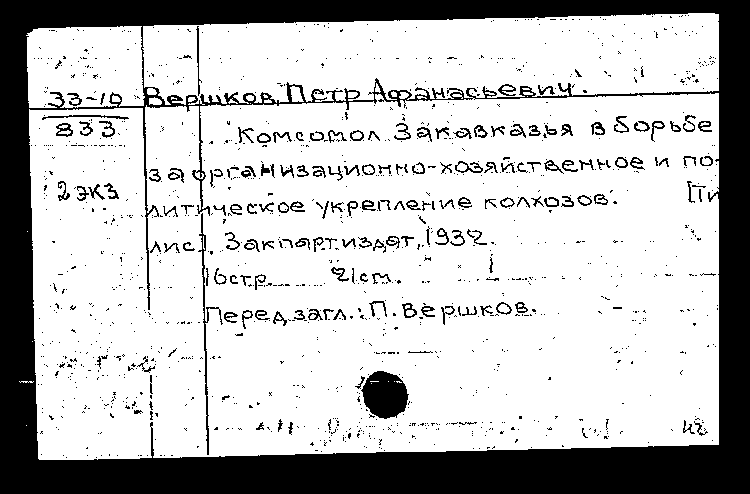 33-10 Вершков, Петр Афанасьевич.
833
Комсомол Закавказья в борьбе
за организационно-хозяйственное и по-
2 экз
литическое укрепление колхозов. [Ти
лис]. Закпартиздат, 1932.
16 стр. 21 см.
Перед загл.: П. Вершков.